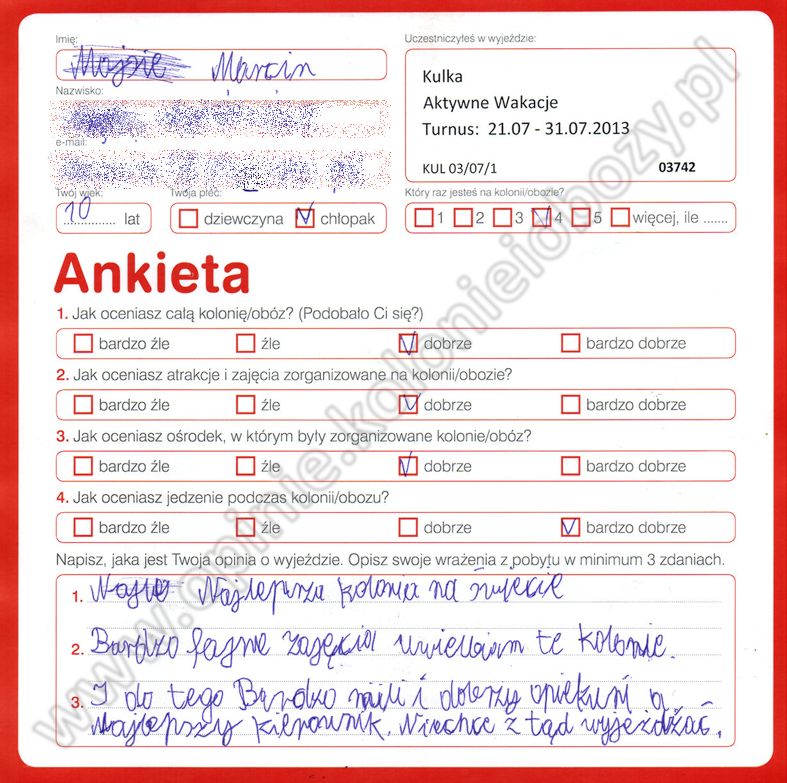 Imię:
Uczestniczyłeś w wyjeździe:
Marcin
Kulka
Nazwisko:
Aktywne Wakacje
Turnus: 21.07 - 31.07.2013
e-mail:
KUL 03/07/1 03742
Twój wiek:
Twoja płeć:
Który raz jesteś na kolonii/obozie?
10 lat
dziewczyna chłopak
1 2 3 4 5 więcej, ile .......
Ankieta
1. Jak oceniasz całą kolonię/obóz? (Podobało Ci się?)
bardzo źle źle dobrze bardzo dobrze
2. Jak oceniasz atrakcje i zajęcia zorganizowane na kolonii/obozie?
bardzo źle źle dobrze bardzo dobrze
3. Jak oceniasz ośrodek, w którym były zorganizowane kolonie/obóz?
bardzo źle źle dobrze bardzo dobrze
4. Jak oceniasz jedzenie podczas kolonii/obozu?
bardzo źle źle dobrze bardzo dobrze
Napisz, jaka jest Twoja opinia o wyjeździe. Opisz swoje wrażenia z pobytu w minimum 3 zdaniach.
1. Najlepsza kolonia na świecie
2. Bardzo fajne zajęcia uwielbiam te kolonie.
3. I do tego Bardzo mili i dobrzy opiekuni a
Najlepszy kierownik. Niechce z tąd wyjeżdżać.
www.opinie.kolonieiobozy.pl